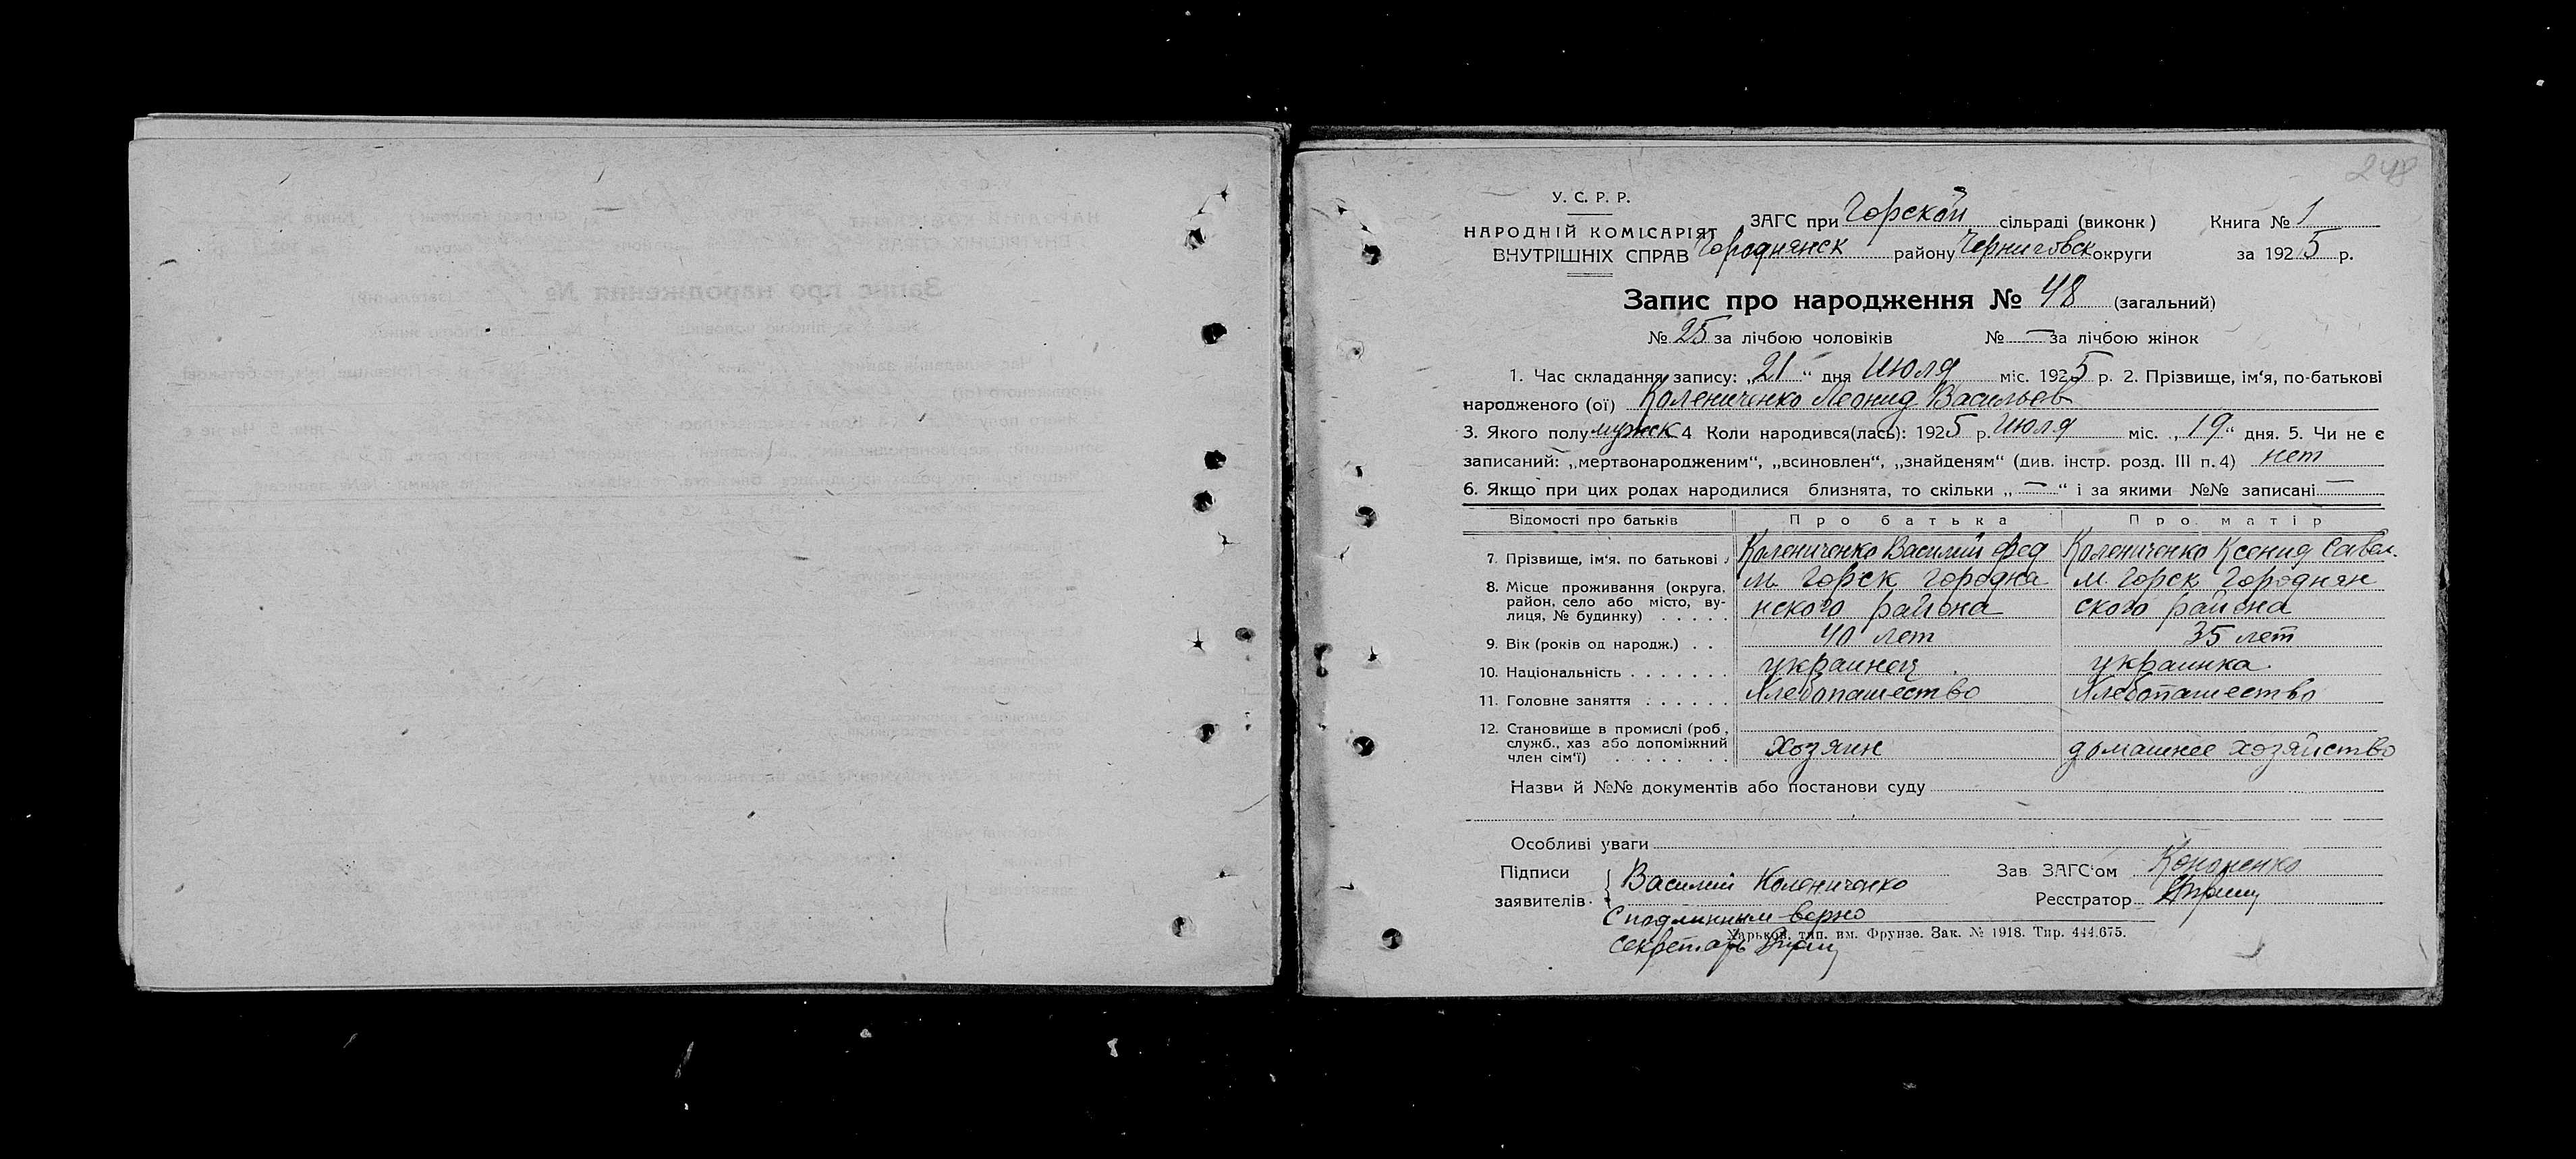 248
У. С. Р. Р.
НАРОДНІЙ КОМІСАРІЯТ
ВНУТРІШНІХ СПРАВ
ЗАГС при Горской сільраді (виконк) Книга № 1
Городнянск району Черниговск округи за 1925 р.
Запис про народження № 48 (загальний)
№ 25 за лічбою чоловіків № — за лічбою жінок
1. Час складання запису: „21“ дня Июля міс. 1925 р. 2. Прізвище, ім‘я, по-батькові
народженого (ої) Колениченко Леонид Васильев
3. Якого полу мужск 4 Коли народився(лась): 1925 р. Июля міс. „19“ дня. 5. Чи не є
записаний: „мертвонародженим“, „всиновлен“, „знайденям“ (див. інстр. розд. III п. 4) нет
6. Якщо при цих родах народилися близнята, то скільки „—“ і за якими №№ записані —
Відомості про батьків Про батька Про матір
7. Прізвище, ім‘я, по батькові Колениченко Василий Фед Колениченко Ксения Савел.
8. Місце проживання (округа, район, село або місто, вулиця, № будинку) . . . . . м Горск Городня м. Горск Городнян
нского района ского района
9. Вік (років од народж.) . . 40 лет 35 лет
10. Національність . . . . . . . украинец украинка
11. Головне заняття . . . . . . Хлебопашество Хлебопашество
12. Становище в промислі (роб, служб., хаз або допоміжний член сім‘ї) . . . . . . . хозяин домашнее хозяйство
Назви й №№ документів або постанови суду
Особливі уваги
Підписи заявителів Василий Колениченко
Зав ЗАГС‘ом Кононенко
Реєстратор
С подлинным верно
Харьков, тип. им. Фрунзе. Зак. № 1918. Тир. 444.675.
секретарь